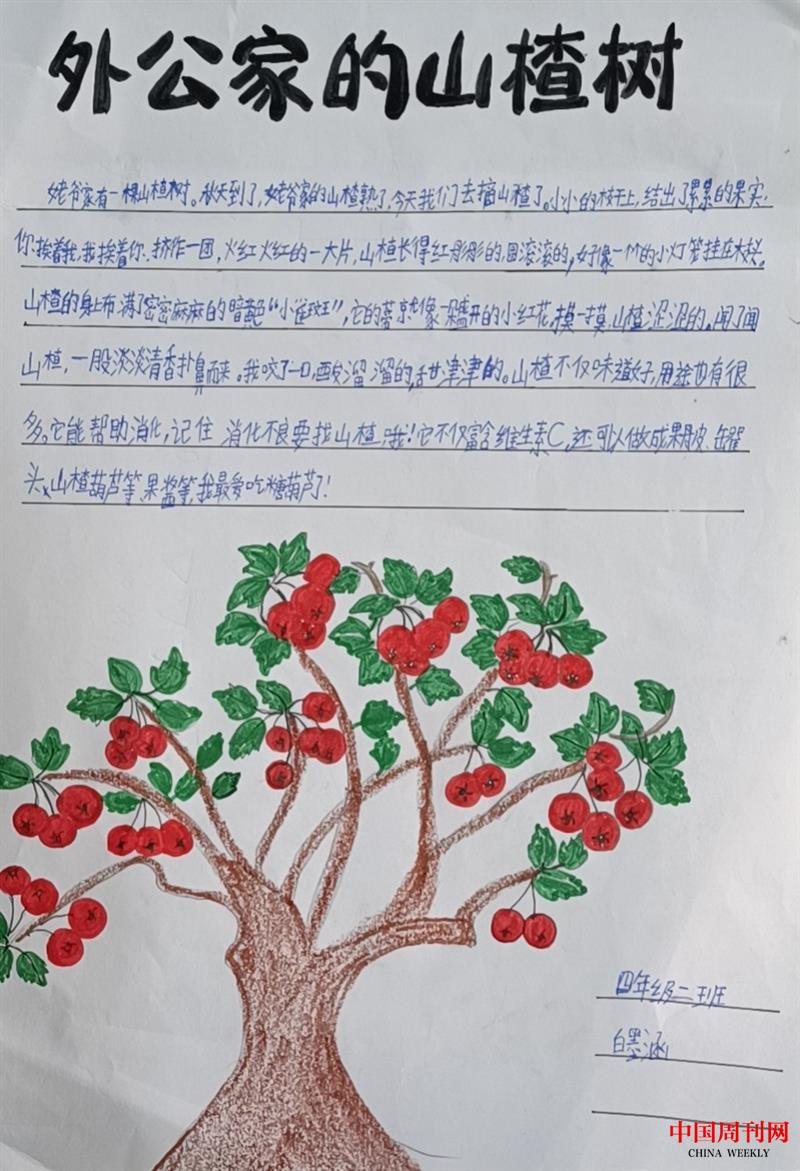 外公家的山楂树
姥爷家有一棵山楂树。秋天到了,姥爷家的山楂熟了,今天我们去摘山楂了。小小的枝干上,结出了累累的果实,
你挨着我,我挨着你,挤作一团,火红火红的一大片,山楂长得红彤彤的,圆滚滚的,好像一个个的小灯笼挂在树梢。
山楂的身上布满了密密麻麻的暗黄色“小雀斑”,它的蒂就像一朵盛开的小红花。摸一摸,山楂涩涩的。闻了闻
山楂,一股淡淡清香扑鼻而来。我咬了一口,酸溜溜的,甜津津的。山楂不仅味道好,用途也有很
多。它能帮助消化,记住消化不良要找山楂哦!它不仅富含维生素C,还可以做成果丹皮、罐
头、山楂葫芦等,果酱等,我最爱吃糖葫芦了!
四年级二班
白墨涵
中国周刊网
CHINA WEEKLY